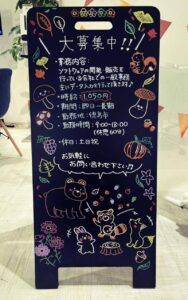 大募集中!!
業務内容:
ソフトウェアの開発・販売を
行っている会社での一般事務
主にデータ入力を行って頂きます。
・時給:1,050円
・期間:即日~長期
・勤務地:徳島市
・勤務時間:9:00-18:00
(休憩60分)
・休日:土日祝
お気軽に
お問い合わせ下さい♪